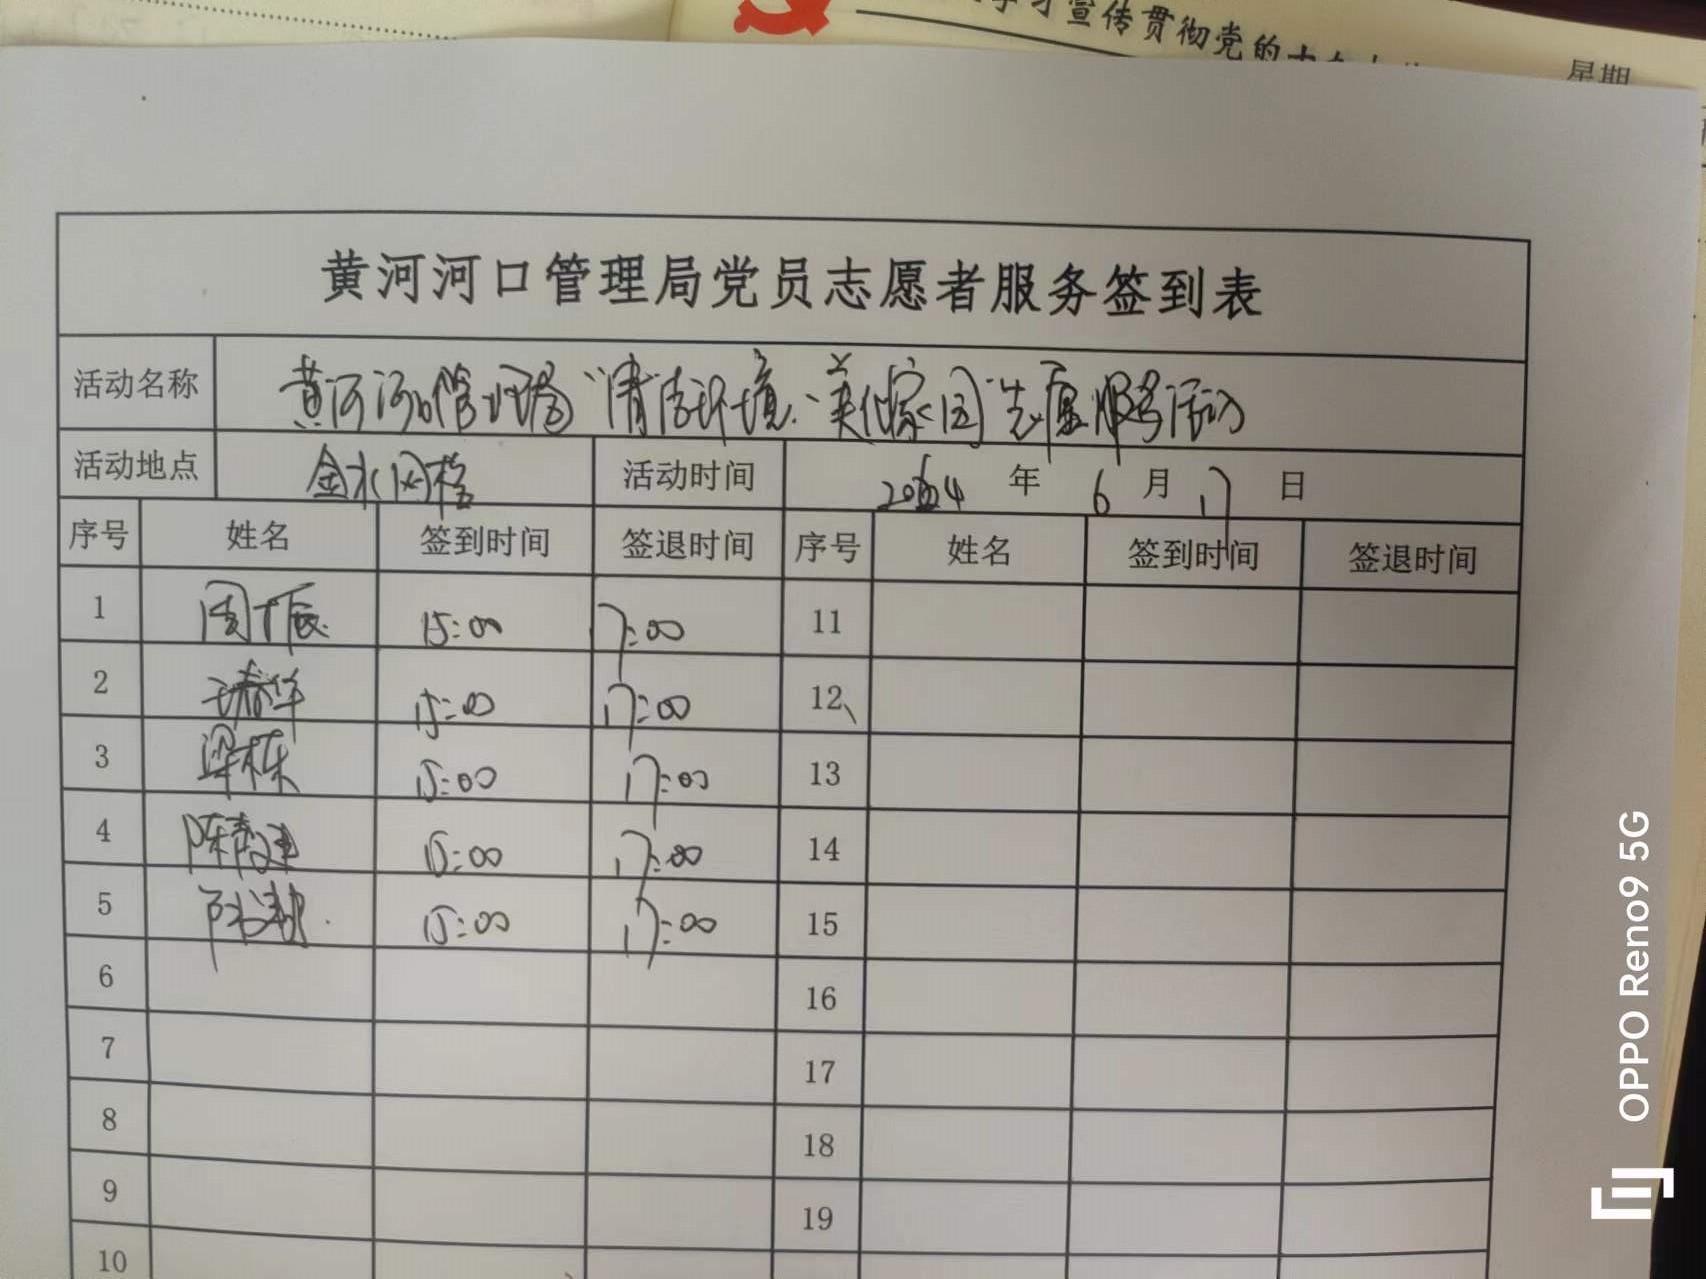 学习宣传贯彻党的
星期
黄河河口管理局党员志愿者服务签到表
活动名称 黄河河口管理局“清洁环境、美化家园”志愿服务活动
活动地点 金水网格 活动时间 2024 年 6 月 17 日
序号 姓名 签到时间 签退时间 序号 姓名 签到时间 签退时间
1 周振 15:00 17:00 11
2 春华 15:00 17:00 12、
3 梁栋 15:00 17:00 13
4 陈 15:00 17:00 14
5 15:00 17:00 15
6 16
7 17
8 18
9 19
10
OPPO Reno9 5G